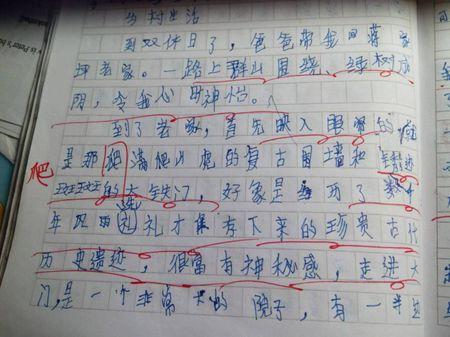 乡村生活
到双休日了，爸爸带我回蒋家
坪老家。一路上群山围绕，绿树成
阴，令我心旷神怡。
到了老家，首先映入眼帘的
是那爬满爬山虎的复古围墙和锈迹
爬
斑斑的大铁门，好象是经历了数千
年风雨洗礼才保存下来的珍贵古代
历史遗迹，很富有神秘感，走进大
门，是一个非常大的院子，有一半